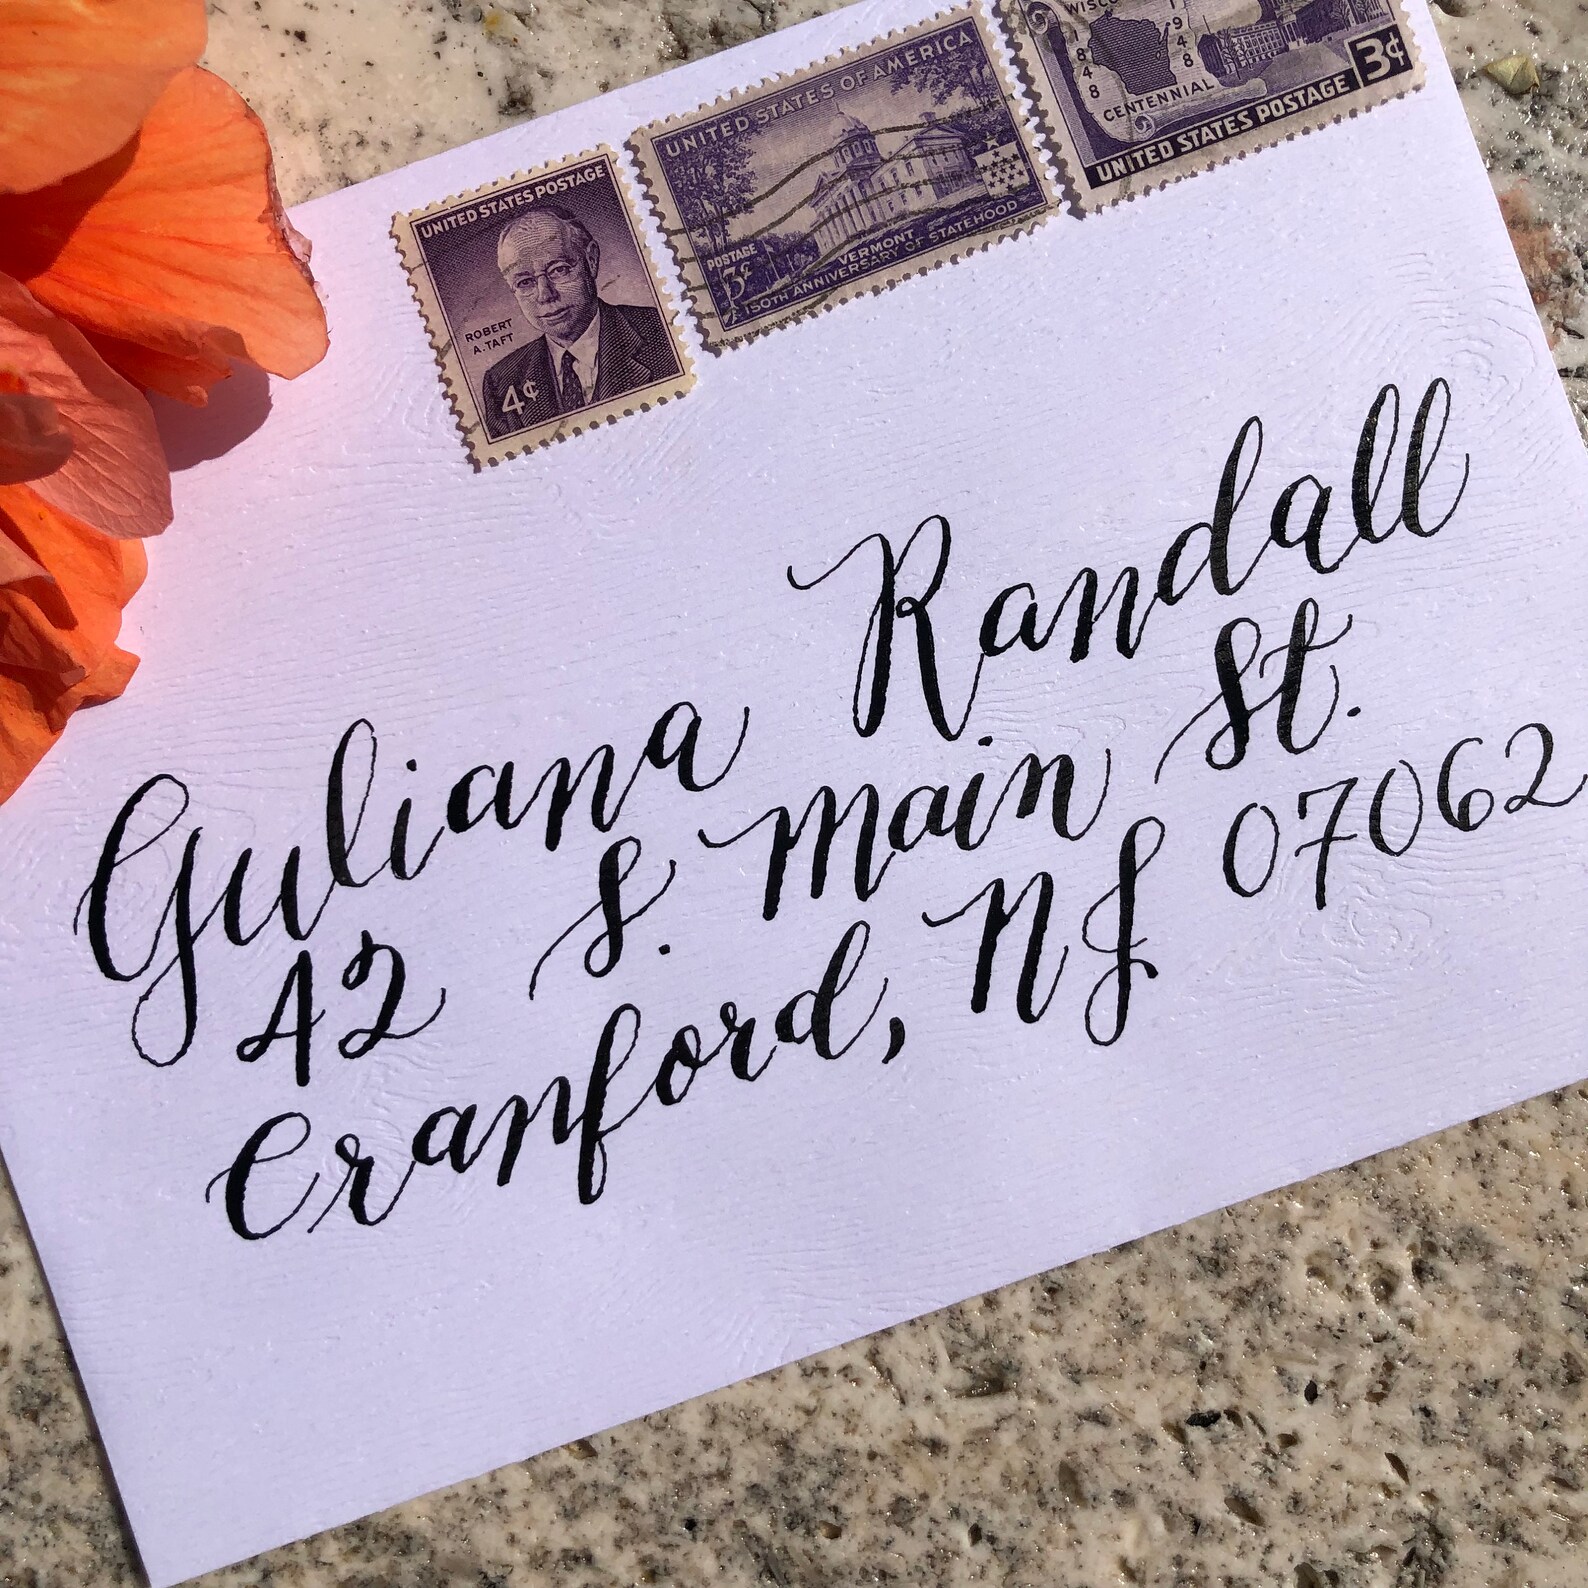 UNITED STATES POSTAGE
ROBERT
A. TAFT
4¢
UNITED STATES OF AMERICA
POSTAGE
3¢
VERMONT
150TH ANNIVERSARY OF STATEHOOD
1848
1948
CENTENNIAL
3¢
UNITED STATES POSTAGE
Guliana Randall
42 S. Main St.
Cranford, NJ 07062